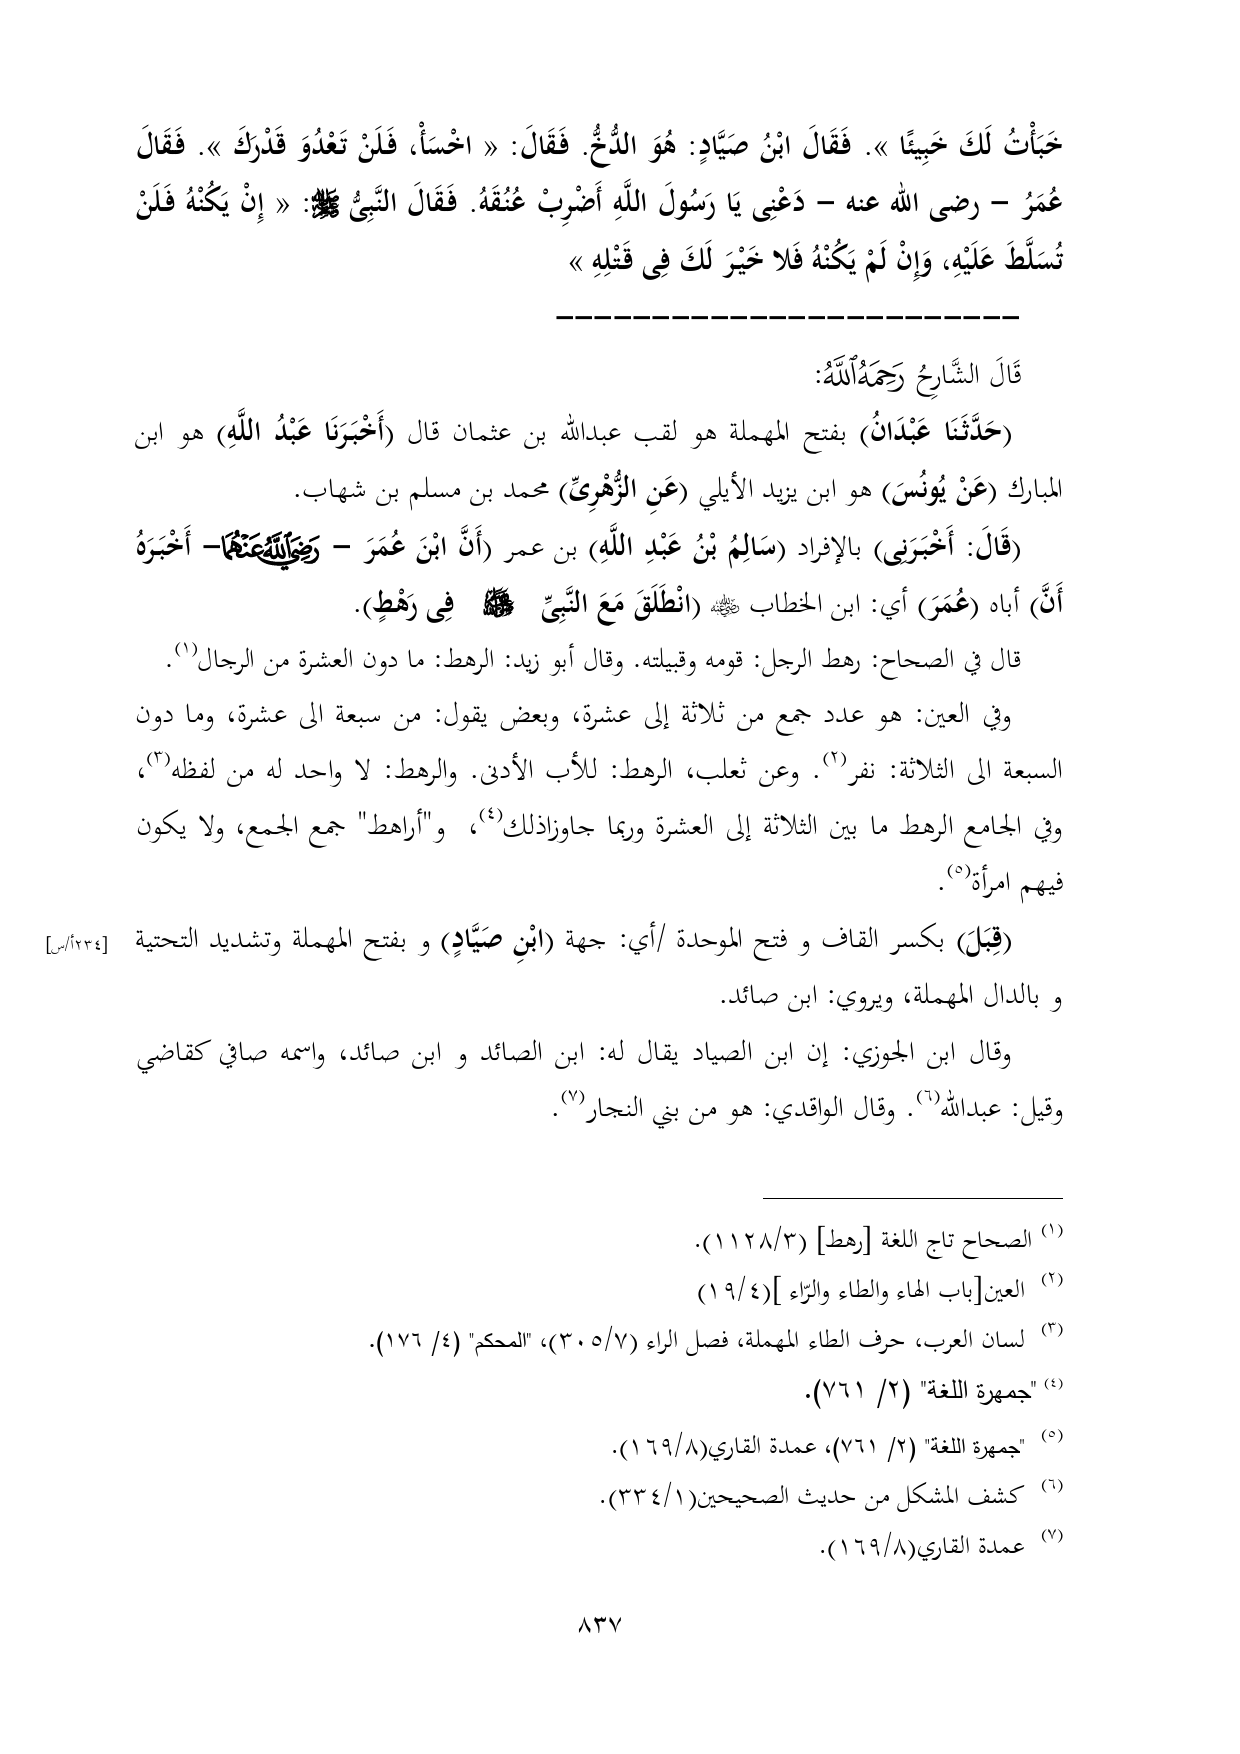 خَبَأْتُ لَكَ خَبِيئًا ». فَقَالَ ابْنُ صَيَّادٍ: هُوَ الدُّخُّ. فَقَالَ: « اخْسَأْ، فَلَنْ تَعْدُوَ قَدْرَكَ ». فَقَالَ
عُمَرُ – رضى الله عنه – دَعْنِى يَا رَسُولَ اللَّهِ أَضْرِبْ عُنُقَهُ. فَقَالَ النَّبِىُّ ﷺ: « إِنْ يَكُنْهُ فَلَنْ
تُسَلَّطَ عَلَيْهِ، وَإِنْ لَمْ يَكُنْهُ فَلا خَيْرَ لَكَ فِى قَتْلِهِ »
————————————————————————
قَالَ الشَّارِحُ رَحِمَهُ ٱللَّهُ:
(حَدَّثَنَا عَبْدَانُ) بفتح المهملة هو لقب عبدالله بن عثمان قال (أَخْبَرَنَا عَبْدُ اللَّهِ) هو ابن
المبارك (عَنْ يُونُسَ) هو ابن يزيد الأيلي (عَنِ الزُّهْرِىِّ) محمد بن مسلم بن شهاب.
(قَالَ: أَخْبَرَنِى) بالإفراد (سَالِمُ بْنُ عَبْدِ اللَّهِ) بن عمر (أَنَّ ابْنَ عُمَرَ – رَضِيَ ٱللَّهُ عَنْهُمَا– أَخْبَرَهُ
أَنَّ) أباه (عُمَرَ) أي: ابن الخطاب ﷺ (انْطَلَقَ مَعَ النَّبِىِّ ﷺ فِى رَهْطٍ).
قال في الصحاح: رهط الرجل: قومه وقبيلته. وقال أبو زيد: الرهط: ما دون العشرة من الرجال(١).
وفي العين: هو عدد جمع من ثلاثة إلى عشرة، وبعض يقول: من سبعة الى عشرة، وما دون
السبعة الى الثلاثة: نفر(٢). وعن ثعلب، الرهط: للأب الأدنى. والرهط: لا واحد له من لفظه(٣)،
وفي الجامع الرهط ما بين الثلاثة إلى العشرة وربما جاوزاذلك(٤)، و"أراهط" جمع الجمع، ولا يكون
فيهم امرأة(٥).
(قِبَلَ) بكسر القاف و فتح الموحدة /أي: جهة (ابْنِ صَيَّادٍ) و بفتح المهملة وتشديد التحتية [٢٣٤أ/س]
و بالدال المهملة، ويروي: ابن صائد.
وقال ابن الجوزي: إن ابن الصياد يقال له: ابن الصائد و ابن صائد، واسمه صافي كقاضي
وقيل: عبدالله(٦). وقال الواقدي: هو من بني النجار(٧).
(١) الصحاح تاج اللغة [رهط] (١١٢٨/٣).
(٢) العين[باب الهاء والطاء والرّاء ](١٩/٤)
(٣) لسان العرب، حرف الطاء المهملة، فصل الراء (٣٠٥/٧)، "المحكم" (٤/ ١٧٦).
(٤) "جمهرة اللغة" (٢/ ٧٦١).
(٥) "جمهرة اللغة" (٢/ ٧٦١)، عمدة القاري(١٦٩/٨).
(٦) كشف المشكل من حديث الصحيحين(٣٣٤/١).
(٧) عمدة القاري(١٦٩/٨).
٨٣٧